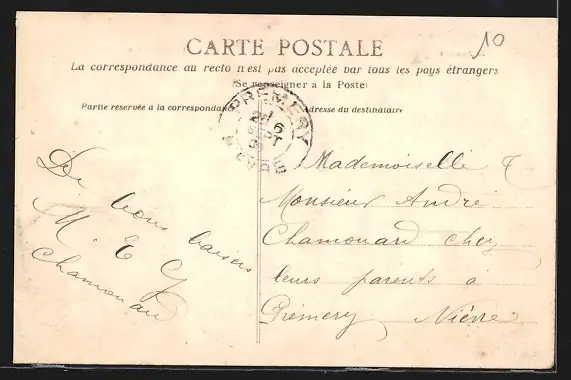 10
CARTE POSTALE
La correspondance au recto n'est pas acceptée par tous les pays étrangers
(Se renseigner a la Poste)
Partie reservée à la correspondance
Adresse du destinataire
PREMERY
6
De bons baisers
M. E
Chamonard
Mademoiselle &
Monsieur André
Chamonard chez
leurs parents à
Prémery Nièvre